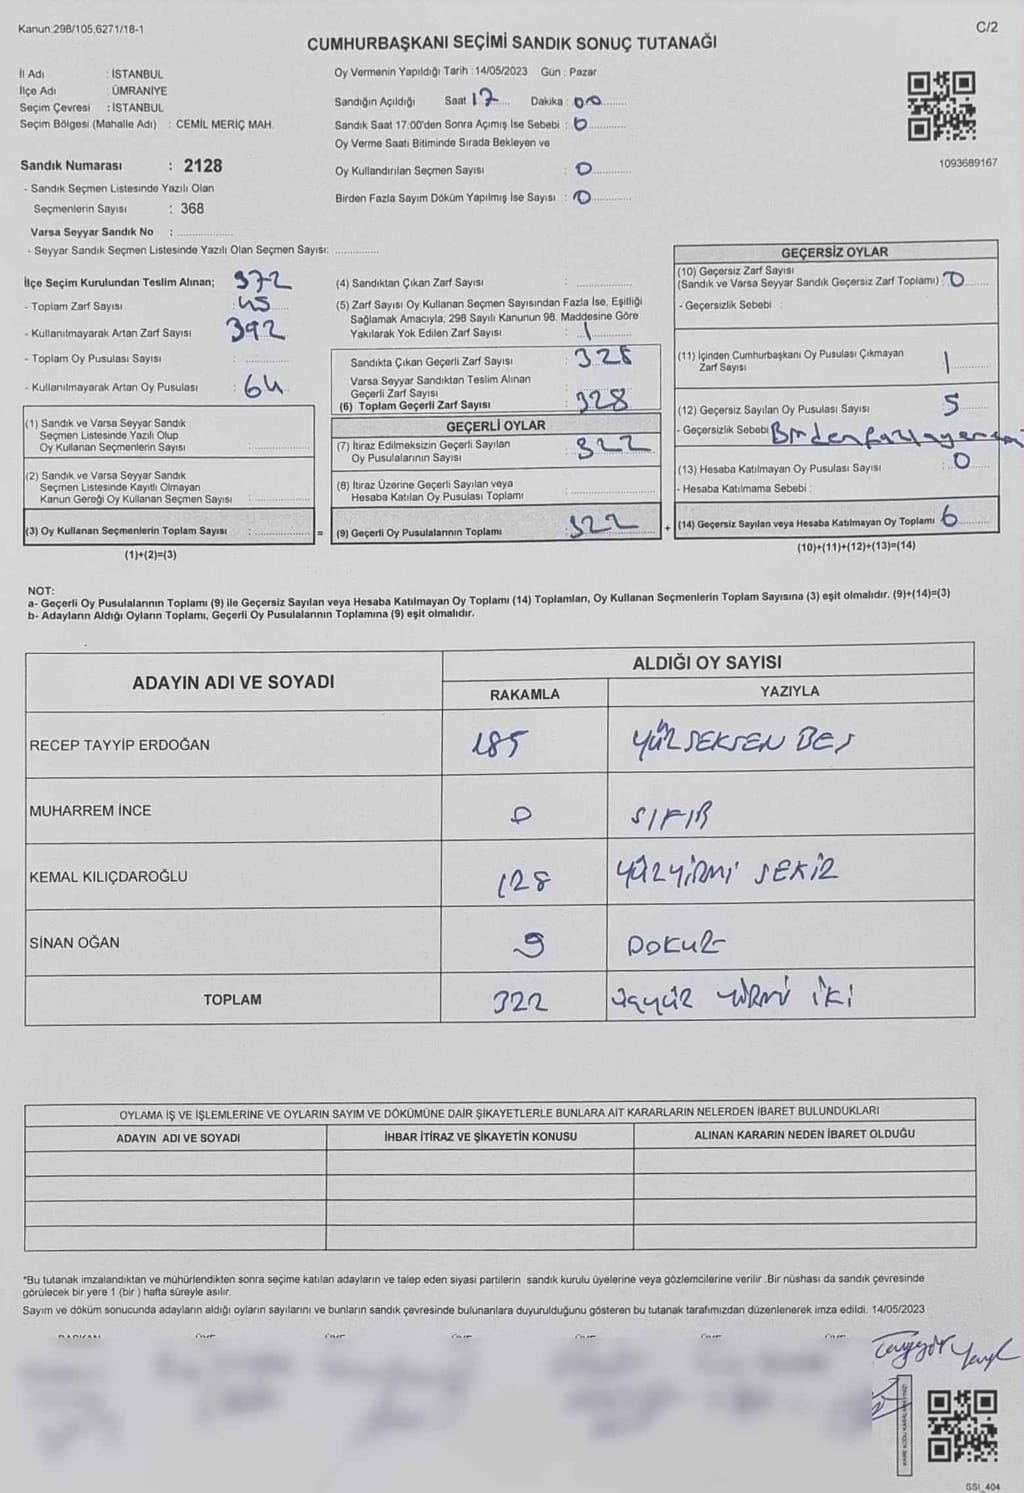 Kanun;298/105;6271/18-1
C/2
CUMHURBAŞKANI SEÇİMİ SANDIK SONUÇ TUTANAĞI
İl Adı : İSTANBUL
İlçe Adı : ÜMRANİYE
Seçim Çevresi : İSTANBUL
Seçim Bölgesi (Mahalle Adı) : CEMİL MERİÇ MAH.
Oy Vermenin Yapıldığı Tarih : 14/05/2023 Gün : Pazar
Sandığın Açıldığı Saat 17.... Dakika : 00........
Sandık Saat 17:00'den Sonra Açımış İse Sebebi : 0............
Oy Verme Saati Bitiminde Sırada Bekleyen ve
Oy Kullandırılan Seçmen Sayısı : 0............
Birden Fazla Sayım Döküm Yapılmış İse Sayısı : 0............
1093689167
Sandık Numarası : 2128
- Sandık Seçmen Listesinde Yazılı Olan
Seçmenlerin Sayısı : 368
Varsa Seyyar Sandık No : ..................
- Seyyar Sandık Seçmen Listesinde Yazılı Olan Seçmen Sayısı: .............
İlçe Seçim Kurulundan Teslim Alınan; 372
- Toplam Zarf Sayısı : 45
- Kullanılmayarak Artan Zarf Sayısı 392
- Toplam Oy Pusulası Sayısı : .............
- Kullanılmayarak Artan Oy Pusulası : 64
(1) Sandık ve Varsa Seyyar Sandık
Seçmen Listesinde Yazılı Olup
Oy Kullanan Seçmenlerin Sayısı : ..................
(2) Sandık ve Varsa Seyyar Sandık
Seçmen Listesinde Kayıtlı Olmayan
Kanun Gereği Oy Kullanan Seçmen Sayısı : ..................
(3) Oy Kullanan Seçmenlerin Toplam Sayısı : .................. =
(1)+(2)=(3)
(4) Sandıktan Çıkan Zarf Sayısı : ..................
(5) Zarf Sayısı Oy Kullanan Seçmen Sayısından Fazla İse, Eşitliği
Sağlamak Amacıyla; 298 Sayılı Kanunun 98. Maddesine Göre
Yakılarak Yok Edilen Zarf Sayısı : 1
Sandıkta Çıkan Geçerli Zarf Sayısı : 328
Varsa Seyyar Sandıktan Teslim Alınan
Geçerli Zarf Sayısı
(6) Toplam Geçerli Zarf Sayısı : 328
GEÇERLİ OYLAR
(7) İtiraz Edilmeksizin Geçerli Sayılan
Oy Pusulalarının Sayısı : 322
(8) İtiraz Üzerine Geçerli Sayılan veya
Hesaba Katılan Oy Pusulası Toplamı : ..................
(9) Geçerli Oy Pusulalarının Toplamı : 322 +
GEÇERSİZ OYLAR
(10) Geçersiz Zarf Sayısı
(Sandık ve Varsa Seyyar Sandık Geçersiz Zarf Toplamı) : 0
- Geçersizlik Sebebi :
(11) İçinden Cumhurbaşkanı Oy Pusulası Çıkmayan
Zarf Sayısı : 1
(12) Geçersiz Sayılan Oy Pusulası Sayısı : 5
- Geçersizlik Sebebi Birden fazla
(13) Hesaba Katılmayan Oy Pusulası Sayısı : 0
- Hesaba Katılmama Sebebi :
(14) Geçersiz Sayılan veya Hesaba Katılmayan Oy Toplamı 6
(10)+(11)+(12)+(13)=(14)
NOT:
a- Geçerli Oy Pusulalarının Toplamı (9) ile Geçersiz Sayılan veya Hesaba Katılmayan Oy Toplamı (14) Toplamları, Oy Kullanan Seçmenlerin Toplam Sayısına (3) eşit olmalıdır. (9)+(14)=(3)
b- Adayların Aldığı Oyların Toplamı, Geçerli Oy Pusulalarının Toplamına (9) eşit olmalıdır.
ADAYIN ADI VE SOYADI ALDIĞI OY SAYISI
RAKAMLA YAZIYLA
RECEP TAYYİP ERDOĞAN 185 YÜZ SEKSEN BEŞ
MUHARREM İNCE 0 SIFIR
KEMAL KILIÇDAROĞLU 128 YÜZ YİRMİ SEKİZ
SİNAN OĞAN 9 DOKUZ
TOPLAM 322 üçyüz YİRMİ İKİ
OYLAMA İŞ VE İŞLEMLERİNE VE OYLARIN SAYIM VE DÖKÜMÜNE DAİR ŞİKAYETLERLE BUNLARA AİT KARARLARIN NELERDEN İBARET BULUNDUKLARI
ADAYIN ADI VE SOYADI İHBAR İTİRAZ VE ŞİKAYETİN KONUSU ALINAN KARARIN NEDEN İBARET OLDUĞU
*Bu tutanak imzalandıktan ve mühürlendikten sonra seçime katılan adayların ve talep eden siyasi partilerin sandık kurulu üyelerine veya gözlemcilerine verilir .Bir nüshası da sandık çevresinde
görülecek bir yere 1 (bir ) hafta süreyle asılır.
Sayım ve döküm sonucunda adayların aldığı oyların sayılarını ve bunların sandık çevresinde bulunanlara duyurulduğunu gösteren bu tutanak tarafımızdan düzenlenerek imza edildi. 14/05/2023
SSI_404